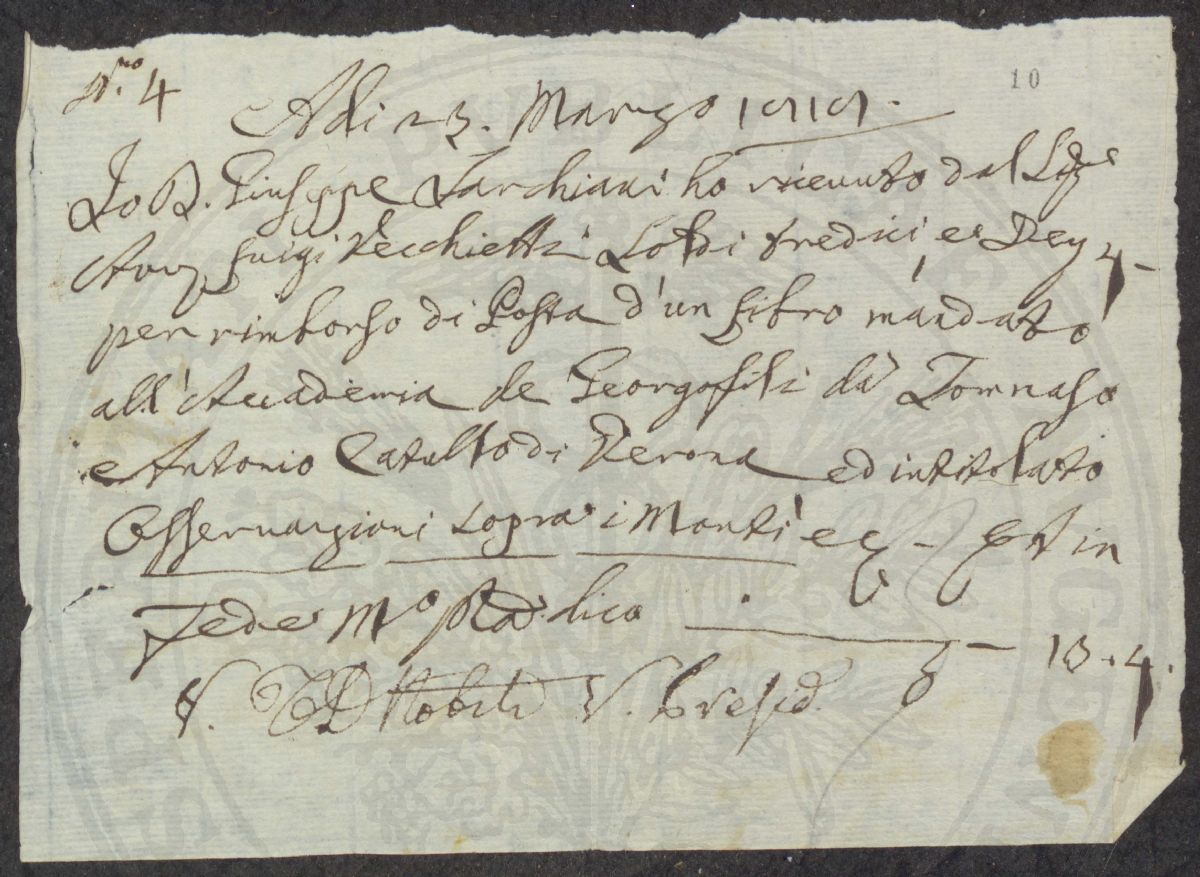 N.ro 4
10
Adi 23. Marzo 1777.
Io D. Giuseppe Tarchiani ho riceuuto dal Sig.re
Auu Luigi Vecchietti Soldi tredici, e Dey 4-
per rimborso di Posta d'un Libro mandato
all'Accademia de Georgofili da Tommaso
Antonio Catullo di Verona ed intitolato
Osseruazioni sopra i Monti ec - ed in
fede M.o P.a dico 13.4.
V. Nobili V. Presid.